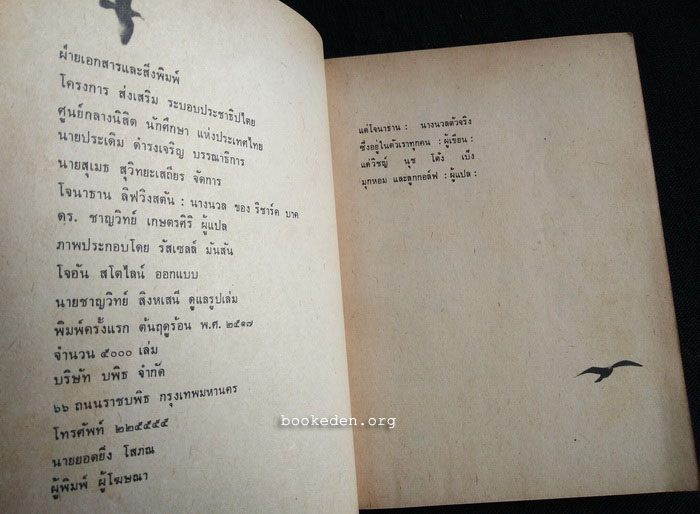 ฝ่ายเอกสารและสิ่งพิมพ์
โครงการ ส่งเสริม ระบอบประชาธิปไตย
ศูนย์กลางนิสิต นักศึกษา แห่งประเทศไทย
นายประเดิม ดำรงเจริญ บรรณาธิการ
นายสุเมธ สุวิทยะเสถียร จัดการ
โจนาธาน ลิฟวิงสตัน : นางนวล ของ ริชาร์ค บาค
ดร. ชาญวิทย์ เกษตรศิริ ผู้แปล
ภาพประกอบโดย รัสเซลล์ มันสัน
โจอัน สโตไลน์ ออกแบบ
นายชาญวิทย์ สิงหเสนี ดูแลรูปเล่ม
พิมพ์ครั้งแรก ต้นฤดูร้อน พ.ศ. ๒๕๑๗
จำนวน ๕๐๐๐ เล่ม
บริษัท บพิธ จำกัด
๖๖ ถนนราชบพิธ กรุงเทพมหานคร
โทรศัพท์ ๒๒๕๕๕๕
นายยอดยิ่ง โสภณ
ผู้พิมพ์ ผู้โฆษณา
แด่โจนาธาน : นางนวลตัวจริง
ซึ่งอยู่ในตัวเราทุกคน : ผู้เขียน :
แด่วิชญ์ นุช โต้ง เบ้ง
มุกหอม และลูกกอล์ฟ : ผู้แปล :
bookeden.org